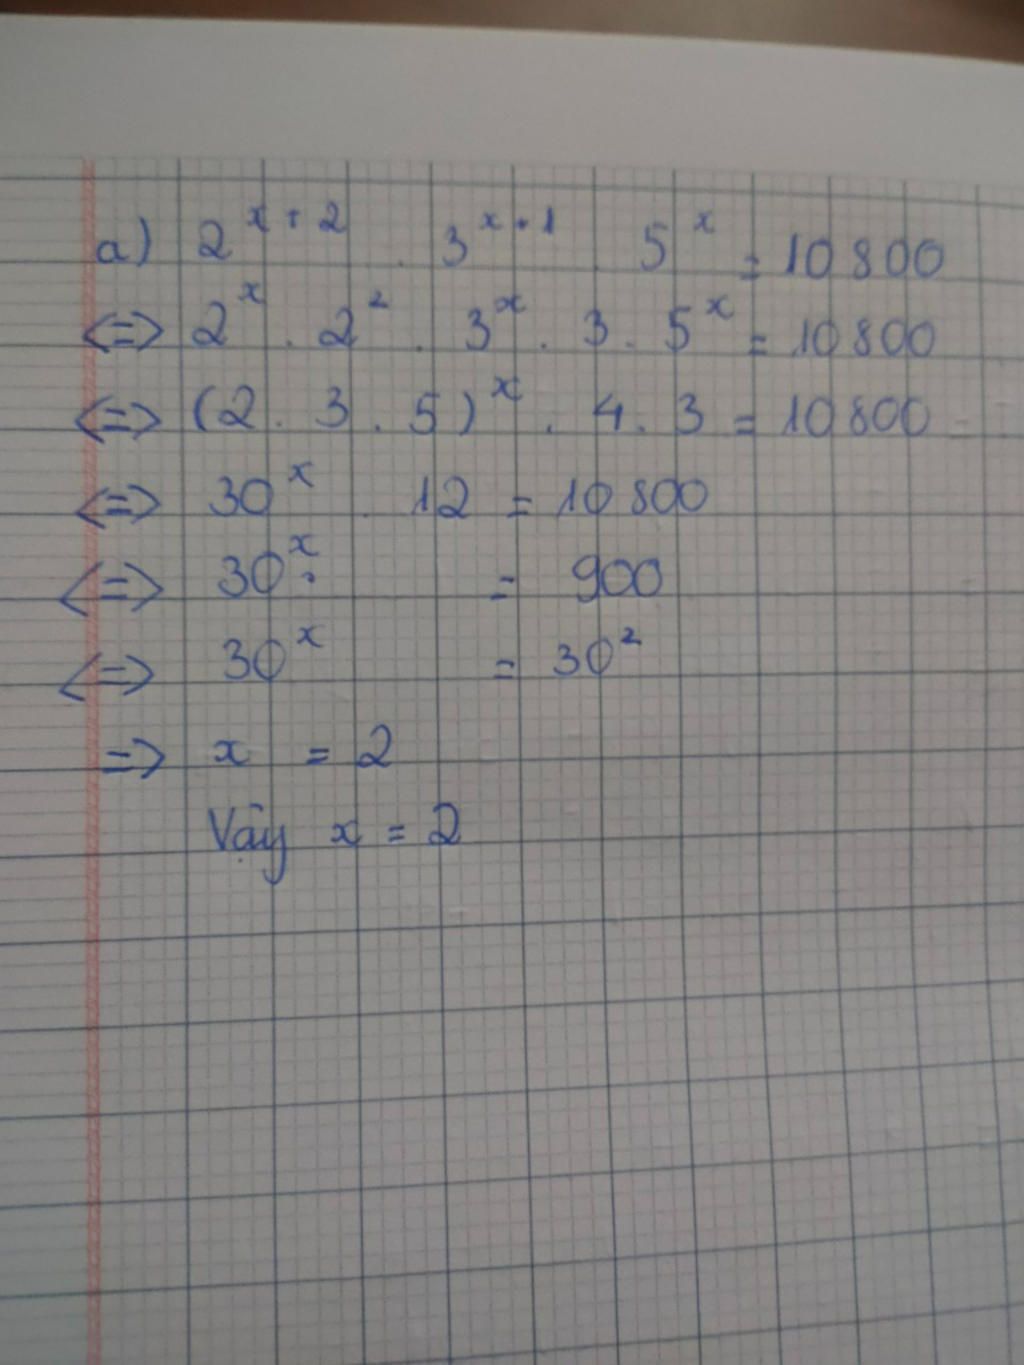 a) 2^{x+2} . 3^{x+1} . 5^x = 10 800
<=> 2^x . 2^2 . 3^x . 3 . 5^x = 10 800
<=> (2 . 3 . 5)^x . 4 . 3 = 10 800
<=> 30^x . 12 = 10 800
<=> 30^x = 900
<=> 30^x = 30^2
=> x = 2
Vậy x = 2